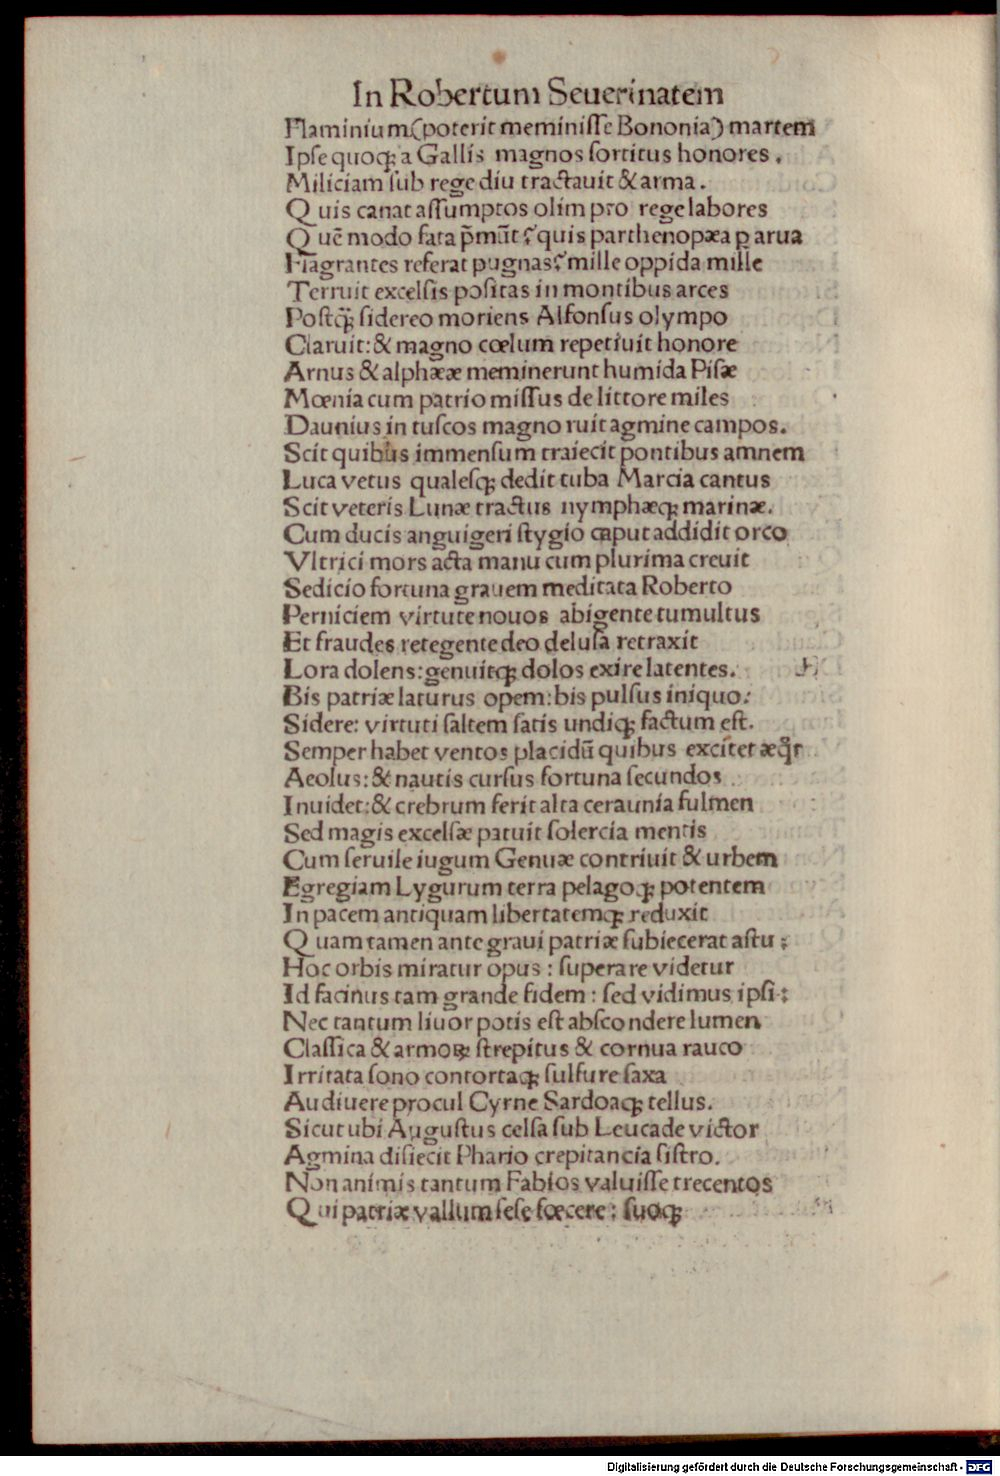 In Robertum Seuerinatem
Flaminium(poterit meminiſſe Bononia) martem
Ipſe quoqꝫ a Gallis magnos ſortitus honores.
Miliciam ſub rege diu tractauit & arma.
Quis canat aſſumptos olim pro rege labores
Quē modo fata p̄mūt? quis parthenopæa ꝑ arua
Flagrantes referat pugnas? mille oppida mille
Terruit excelſis poſitas in montibus arces
Poſtq̄ꝫ ſidereo moriens Alfonſus olympo
Claruit: & magno cœlum repetiuit honore
Arnus & alphææ meminerunt humida Piſæ
Mœnia cum patrio miſſus de littore miles
Daunius in tuſcos magno ruit agmine campos.
Scit quibus immenſum traiecit pontibus amnem
Luca vetus qualeſqꝫ dedit tuba Marcia cantus
Scit veteris Lunæ tractus nymphæqꝫ marinæ.
Cum ducis anguigeri ſtygio caput addidit orco
Vltrici mors acta manu cum plurima creuit
Sedicio fortuna grauem meditata Roberto
Perniciem virtute nouos abigente tumultus
Et fraudes retegente deo deluſa retraxit
Lora dolens: genuitqꝫ dolos exire latentes.
Bis patriæ laturus opem: bis pulſus iniquo:
Sidere: virtuti ſaltem ſatis undiqꝫ factum eſt.
Semper habet ventos placidū quibus excitet æq̊r
Aeolus: & nautis curſus fortuna ſecundos
Inuidet: & crebrum ferit alta ceraunia fulmen
Sed magis excelſæ patuit ſolercia mentis
Cum ſeruile iugum Genuæ contriuit & urbem
Egregiam Lygurum terra pelagoqꝫ potentem
In pacem antiquam libertatemqꝫ reduxit
Quam tamen ante graui patriæ ſubiecerat aſtu:
Hoc orbis miratur opus: ſuperare videtur
Id facinus tam grande fidem: ſed vidimus ipſi:
Nec tantum liuor potis eſt abſcondere lumen
Claſſica & armoꝝ ſtrepitus & cornua rauco
Irritata ſono contortaqꝫ ſulfure ſaxa
Audiuere procul Cyrne Sardoaqꝫ tellus.
Sicut ubi Auguſtus celſa ſub Leucade victor
Agmina diſiecit Phario crepitancia ſiſtro.
Non animis tantum Fabios valuiſſe trecentos
Qui patriæ vallum ſeſe fœcere: ſuoqꝫ
Digitalisierung gefördert durch die Deutsche Forschungsgemeinschaft - DFG